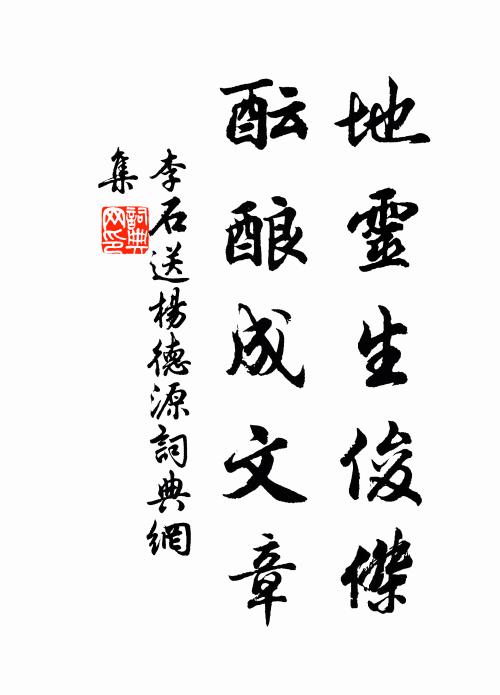 地靈生俊傑
酝酿成文章
李石送楊德源詞典網
集
詞典
网印